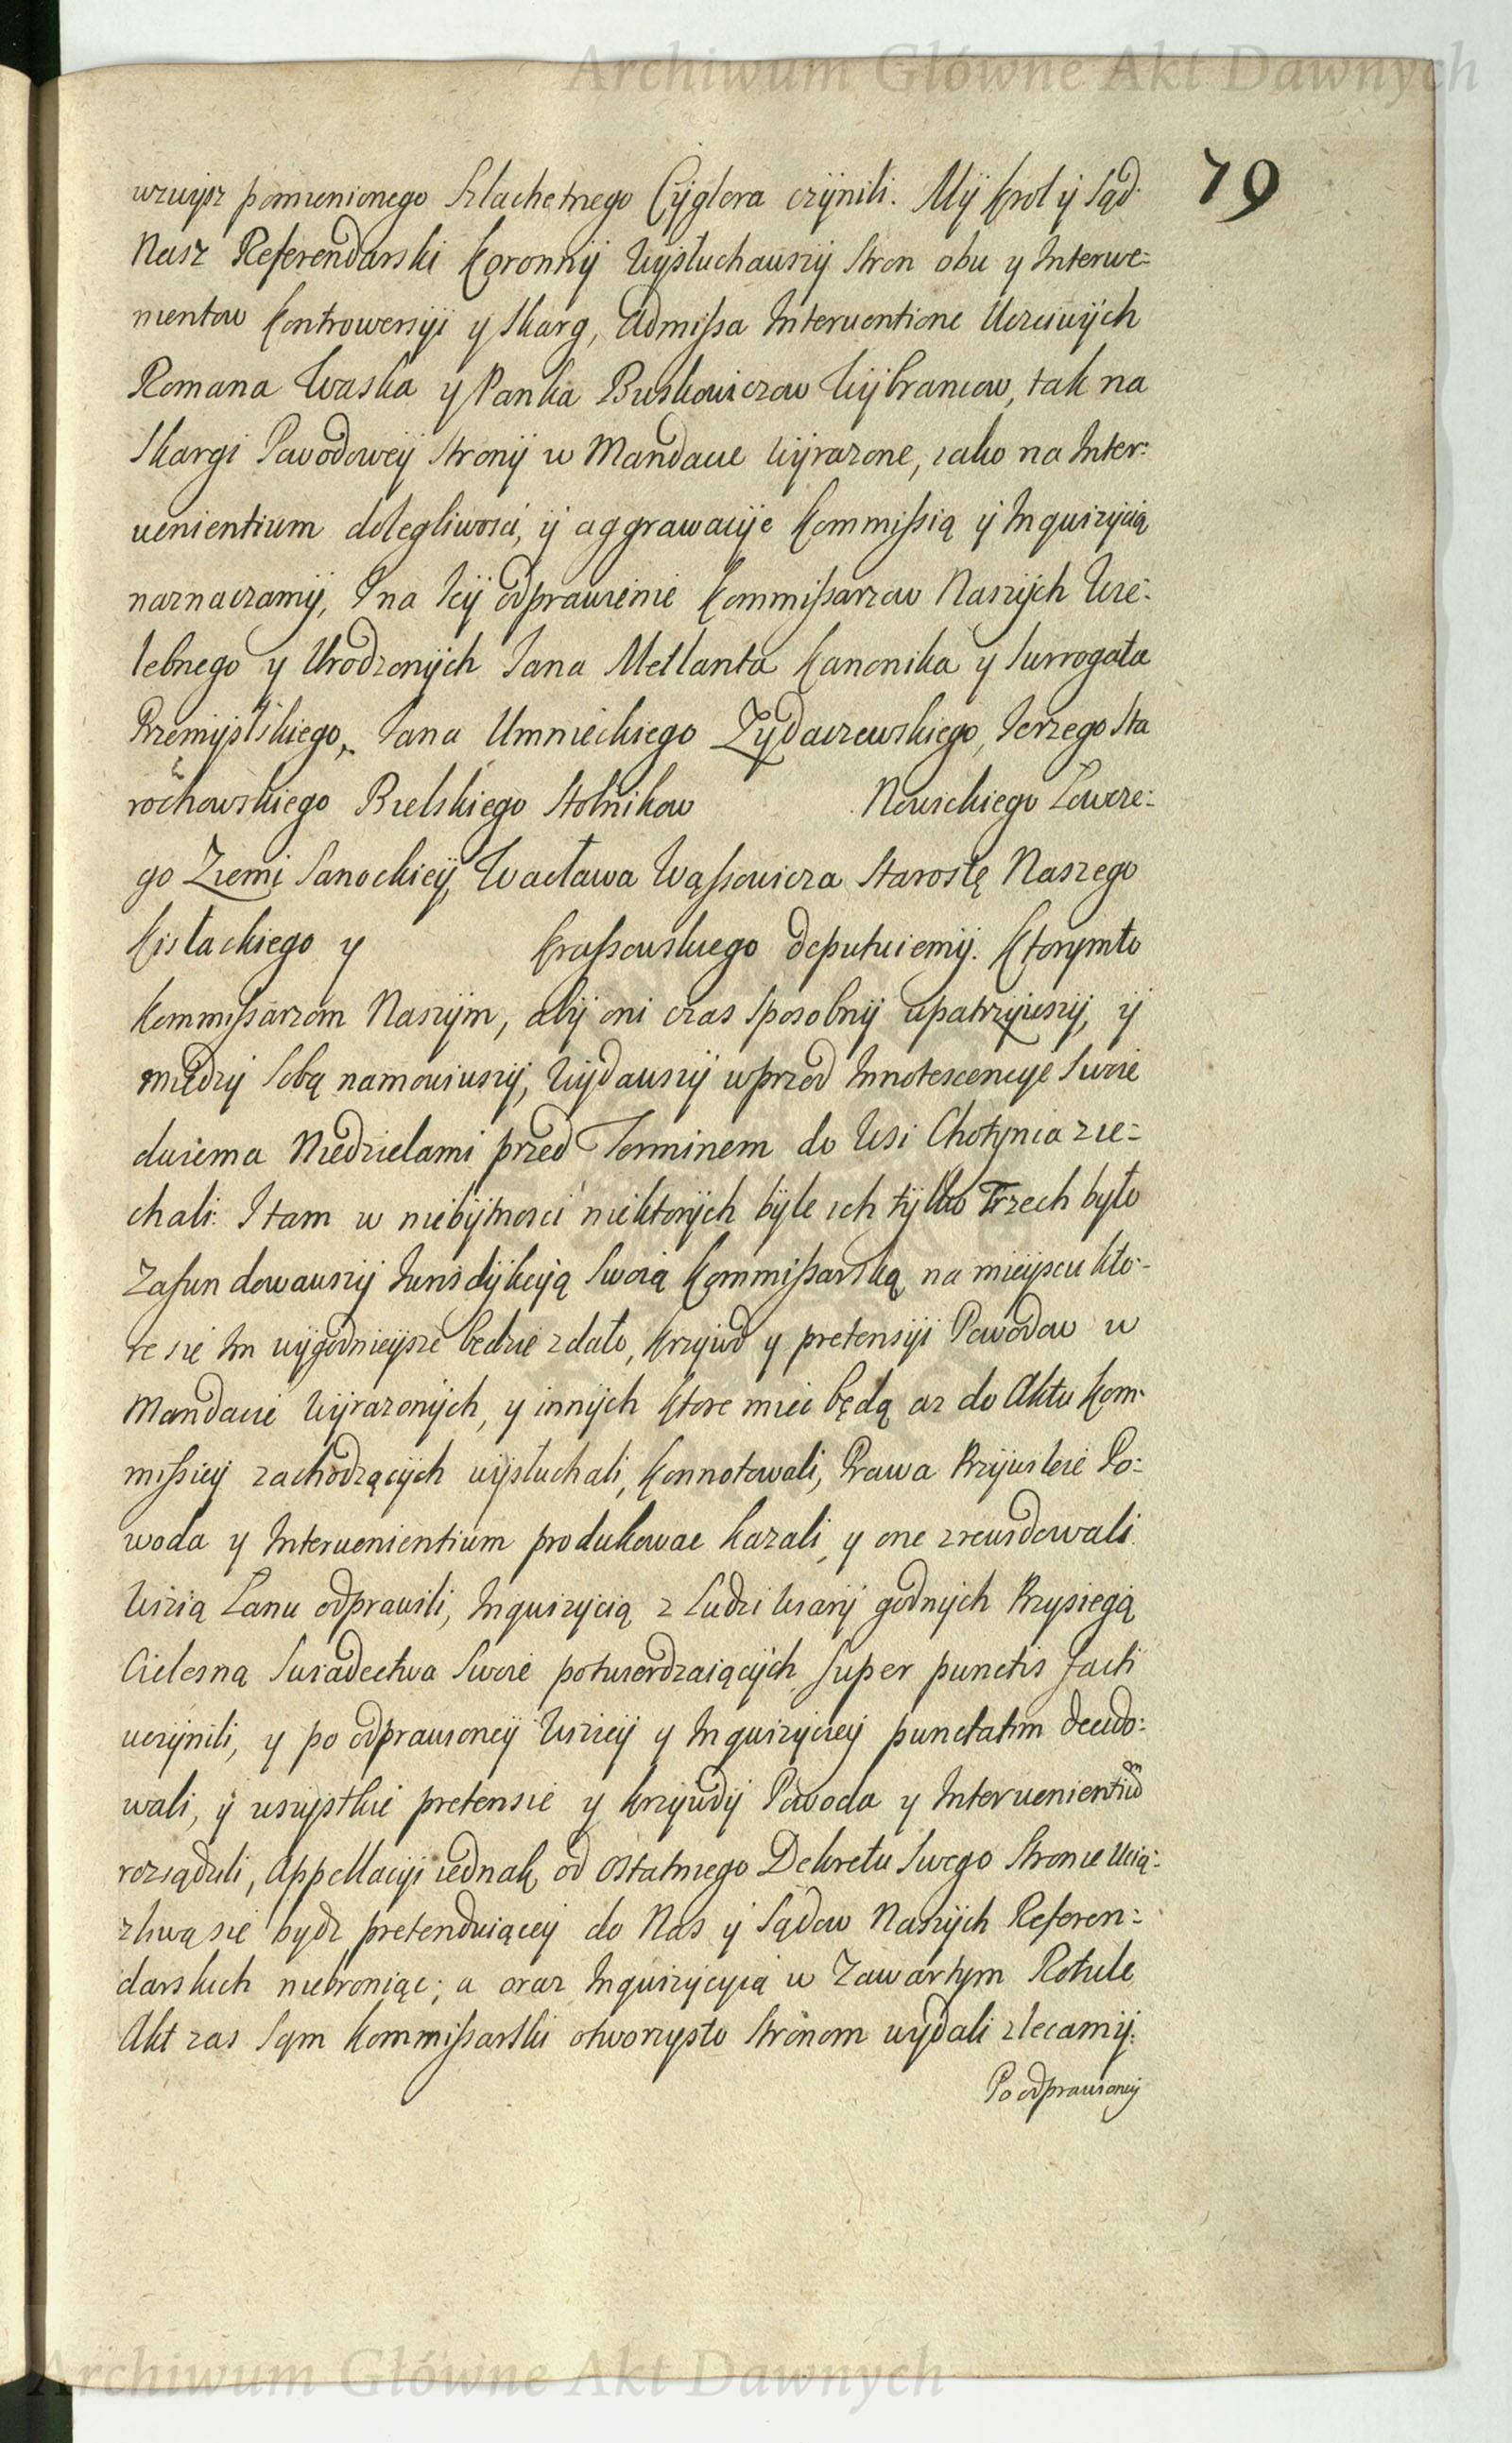 Archiwum Główne Akt Dawnych
79
wzwysz pomienionego Szlachetnego Cyglera czÿnili. Mÿ Krol ÿ Sąd
Nasz Referendarski Koronnÿ Wysłuchauszÿ Stron obu y Interwe=
nientow Kontrowersÿi y Skarg, Admissa Interventione Uczciwÿch
Romana Waska y Panka Buskowiczow Wÿbrancow, tak na
Skargi Powodoweÿ Stronÿ w Mandacie wÿrazone, iako na Inter=
uenientium dolegliwosci, ÿ aggrawacÿie Kommissią ÿ Inquizÿcią
naznaczamÿ, I na Ieÿ odprawienie Kommissarzow Naszÿch Wie=
lebnego y Urodzonÿch Jana Metlanta Kanonika y Surrogata
Przemÿslskiego, Jana Umnieckiego Zÿdaczewskiego, Jerzego Sta
rochowskiego Bielskiego Stolnikow Nowickiego Łowcze=
go Ziemi Sanockieÿ, Wacława Wąssowicza Starostę Naszego
Kisłackiego y Krassowskiego deputuiemÿ. Ktorymto
Kommissarzom Naszÿm, abÿ oni czas sposobnÿ upatrzÿwszÿ, ÿ
międzÿ sobą namowiwszÿ, Wÿdauszÿ wprzod Innotescencye Swoie
dwiema Niedzielami przed Terminem do Wsi Chotynia zie=
chali. I tam w niebÿtnosci niektorÿch bÿle ich tÿlko Trzech było
Zafundowauszÿ Jurisdÿkcÿą Swoią Kommissarską na mieÿscu kto=
re się Im wÿgodnieÿsze będzie zdało, Krzÿwd y pretensÿi Powodow w
Mandacie Wÿrazonÿch, y innÿch ktore miec będą az do Aktu Kom=
missieÿ zachodzącÿch wÿsłuchali, Konnotowali, Prawa Przÿwileie Po=
woda y Interuenientium produkowac kazali, y one zrewidowali
Wizią Łanu odprawili, Inquizÿcią z Ludzi Wiarÿ godnÿch Przysięgą
Cielesną Swiadectwa Swoie potwierdzaiącÿch super punctis facti
uczÿnili, y po odprawioneÿ Wizieÿ y Inquizÿcieÿ punctatim decido=
wali, ÿ wszÿstkie pretensie y krzÿwdÿ Powoda y Interuenientiũ
rozsądzili, Appellacÿi iednak od ostatniego Dekretu Swego Stronie Ucią=
zliwą się bydz pretenduiąceÿ do Nas ÿ Sądow Naszÿch Referen=
darskich niebroniąc; a oraz Inquizÿcyią w Zawartym Rotule
Akt zas Sąm Kommissarski otworzysto Stronom wÿdali zlecamÿ.
Po odprawioneÿ
Archiwum Główne Akt Dawnych